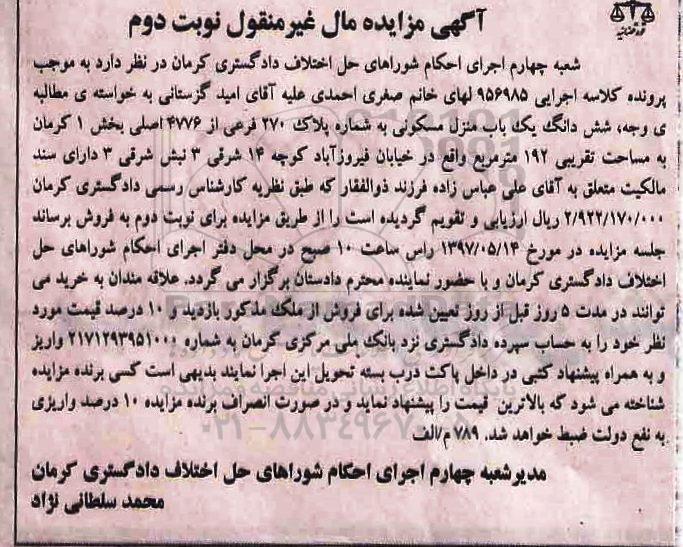 آگهی مزایده مال غیرمنقول نوبت دوم
شعبه چهارم اجرای احکام شوراهای حل اختلاف دادگستری کرمان در نظر دارد به موجب
پرونده کلاسه اجرایی ۹۵۶۹۸۵ لهای خانم صغری احمدی علیه آقای امید گزستانی به خواسته ی مطالبه
ی وجه، شش دانگ یک باب منزل مسکونی به شماره پلاک ۲۷۰ فرعی از ۴۷۷۶ اصلی بخش ۱ کرمان
به مساحت تقریبی ۱۹۲ مترمربع واقع در خیابان فیروزآباد کوچه ۱۴ شرقی ۳ نبش شرقی ۳ دارای سند
مالکیت متعلق به آقای علی عباس زاده فرزند ذوالفقار که طبق نظریه کارشناس رسمی دادگستری کرمان
۲/۹۲۲/۱۷۰/۰۰۰ ریال ارزیابی و تقویم گردیده است را از طریق مزایده برای نوبت دوم به فروش برساند
جلسه مزایده در مورخ ۱۳۹۷/۰۵/۱۴ راس ساعت ۱۰ صبح در محل دفتر اجرای احکام شوراهای حل
اختلاف دادگستری کرمان و با حضور نماینده محترم دادستان برگزار می گردد. علاقه مندان به خرید می
توانند در مدت ۵ روز قبل از روز تعیین شده برای فروش از ملک مذکور بازدید و ۱۰ درصد قیمت مورد
نظر خود را به حساب سپرده دادگستری نزد بانک ملی مرکزی کرمان به شماره ۲۱۷۱۲۹۳۹۵۱۰۰۰ واریز
و به همراه پیشنهاد کتبی در داخل پاکت درب بسته تحویل این اجرا نمایند بدیهی است کسی برنده مزایده
شناخته می شود که بالاترین قیمت را پیشنهاد نماید و در صورت انصراف برنده مزایده ۱۰ درصد واریزی
به نفع دولت ضبط خواهد شد. ۷۸۹ م/الف
مدیرشعبه چهارم اجرای احکام شوراهای حل اختلاف دادگستری کرمان
محمد سلطانی نژاد
۰۲۱-۸۸۳۴۹۶۷۰